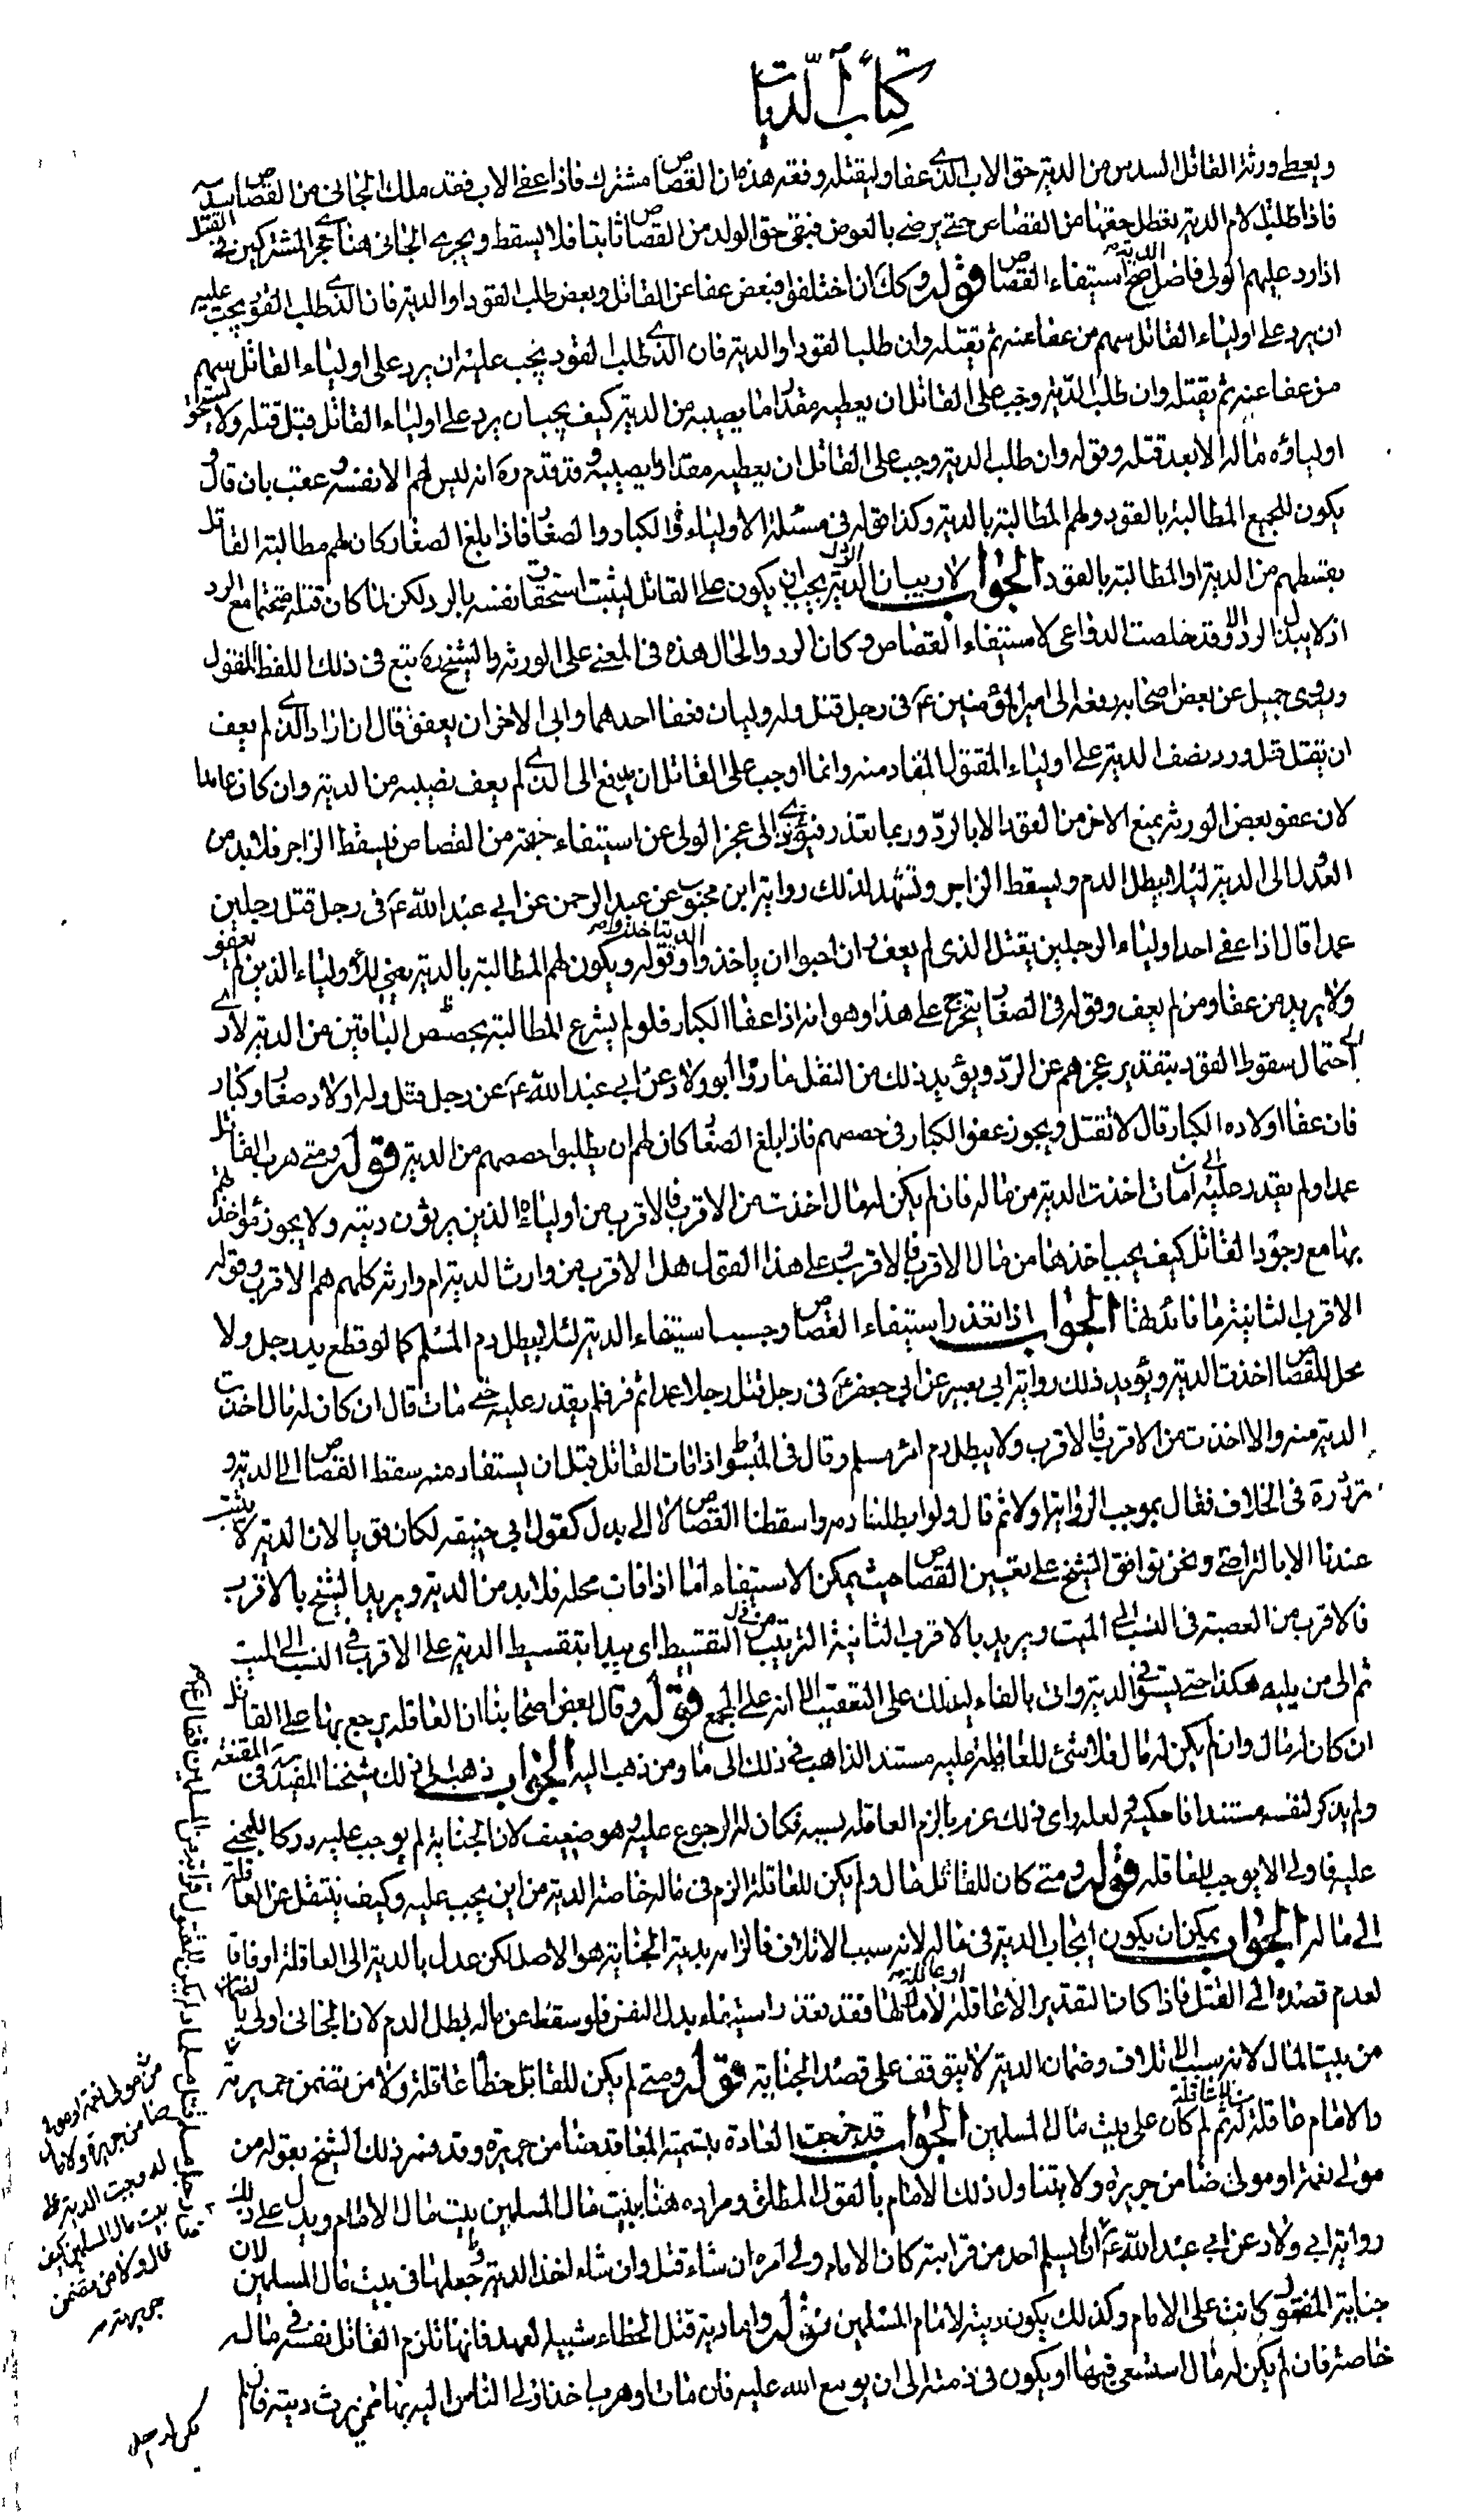 كتاب الديات
ويعطي ورثة القاتل السدس من الدية حق الاب الذي عفا وليقتله وفقه هذه ان القصاص مشترك فاذا عفي الاب فقد ملك الجاني من القصاص سدسه
فاذا طلبت الام الدية تعطل حقها من القصاص حتى يرضى بالعوض فبقي حق الولد من القصاص ثابتا فلا يسقط ويجري الجاني هنا مجرى المشتركين في القتل
اذا رد عليهم الولي فاضل الدية صح استيفاء القصاص قوله وكك ان اختلفوا فبعض عفا عن القاتل وبعض طلب القود او الدية فان الذي طلب القود يجب عليه
ان يرد على اولياء القاتل سهم من عفا عنه ثم يقتله وان طلب القود او الدية فان الذي طلب القود يجب عليه ان يرد على اولياء القاتل سهم
من عفا عنه ثم يقتله وان طلب الدية وجب على القاتل ان يعطيه مقدار ما يصيبه من الدية كيف يجب ان يرد على اولياء القاتل قبل قتله ولا يستحق
اولياؤه ماله الا بعد قتله وقوله وان طلب الدية وجب على القاتل ان يعطيه مقدار ما يصيبه وقد تقدم ره انه ليس لهم الا نفسه وعقب بان قال
يكون للجميع المطالبة بالقود ولهم المطالبة بالدية وكذا قوله في مسئلة الاولياء والكبار والصغار فاذا بلغ الصغار كان لهم مطالبة القاتل
بقسطهم من الدية او المطالبة بالقود الجواب لا ريب ان الدية يجب ان يكون على القاتل ليثبت استحقاق نفسه بالرد لكن لما كان قتله صحته مع الرد
اذ لا يبذل الرد الا وقد خلصت الدواعي لاستيفاء القصاص وكان الرد والحال هذه في المعنى على الورثة والشيخ ره تبع في ذلك اللفظ المنقول
وروى جميل عن بعض اصحابه رفعه الى امير المؤمنين ع في رجل قتل وله وليان فعفا احدهما وابى الاخر ان يعفو فقال ان اراد الذي لم يعف
ان يقتل قتل ورد نصف الدية على اولياء المقتول المقاد منه وانما اوجب على القاتل ان يدفع الى الذي لم يعف نصيبه من الدية وان كان عامدا
لان عفو بعض الورثة يمنع الاخر من القود الا بالرد وربما تعذر فيؤدي الى عجز الولي عن استيفاء حقه من القصاص فيسقط الزاجر فلا بد من
العدل الى الدية لئلا يبطل الدم ويسقط الزاجر وتشهد لذلك رواية ابن محبوب عن عبد الرحمن عن ابي عبد الله ع في رجل قتل رجلين
عمدا قال اذا عفي احد اولياء الرجلين يقتل الذي لم يعف وان احبوا ان ياخذوا الدية اخذوا وقوله ويكون لهم المطالبة بالدية يعني لاولياء الذين لم يعفوا
ولا يريد من عفا ومن لم يعف وقوله في الصغار يتخرج على هذا وهو انه اذا عفا الكبار فلو لم يشرع المطالبة بحصص الباقين من الدية لادى
الى احتمال سقوط القود بتقدير عجزهم عن الرد ويؤيد ذلك من النقل ما رواه ابو ولاد عن ابي عبد الله ع عن رجل قتل وله اولاد صغار وكبار
فان عفا اولاده الكبار قال لا تقتل ويجوز عفو الكبار في حصصهم فاذا بلغ الصغار كان لهم ان يطلبوا حصصهم من الدية قوله ومتى هرب القاتل
عمدا ولم يقدر عليه الى ان مات اخذت الدية من ماله فان لم يكن له مال اخذت من الاقرب فالاقرب من اولياءه الذين يرثون ديته ولا يجوز مؤاخذتهم
بها مع وجود القاتل كيف يجب اخذها من مال الاقرب فالاقرب وعلى هذا القول هل الاقرب من وارث الدية ام وارثه كلهم هم الاقرب وقوله
الاقرب الثانية ما فائدتها الجواب اذا تعذر استيفاء القصاص وجب استيفاء الدية لئلا يبطل دم المسلم كما لو قطع يد رجل ولا
محل للقصاص اخذت الدية ويؤيد ذلك رواية ابي بصير عن ابي جعفر ع في رجل قتل رجلا عمدا ثم فر فلم يقدر عليه حتى مات قال ان كان له مال اخذت
الدية منه والا اخذت من الاقرب فالاقرب ولا يبطل دم امرء مسلم وقال في المبسوط اذا مات القاتل قبل ان يستقاد منه سقط القصاص الى الدية و
تردده في الخلاف فقال بموجب الرواية اولا ثم قال ولو ابطلنا دمه واسقطنا القصاص لا الى بدل كقول ابي حنيفه لكان قويا لان الدية لا يثبت
عندنا الا بالتراضي ونحن نوافق الشيخ على تعيين القصاص حيث يمكن الاستيفاء اما اذا فات محله فلا بد من الدية ويريد الشيخ بالاقرب
فالاقرب من العصبة في النسب الى الميت ويريد بالاقرب الثانية الترتيب من التقسيط اي يبدا بتقسيط الدية على الاقرب في النسب الى الميت
ثم الى من يليه هكذا حتى يستوفي الدية واتى بالفاء ليدلك على التعقيب لا انه على الجمع قوله وقال بعض اصحابنا ان العاقله يرجع بها على القاتل
ان كان له مال وان لم يكن له مال فلا شئ للعاقلة عليه مستند الذاهب في ذلك الى ما ومن ذهب اليه الجواب ذهب الى ذلك شيخنا المفيد في المقنعة
ولم يذكر لنفسه مستندا فاحكيه ولعله راى ذلك غرم بالزم العاقله بسببه فكان له الرجوع عليه وهو ضعيف لان الجناية لم يوجب عليه دركا للمجني
عليه فاولى الا يوجب للعاقله قوله ومتى كان للقاتل مال ولم يكن للعاقلة الزم في ماله خاصة الدية من اين يجب عليه وكيف ينتقل عن العاقلة
الى ماله الجواب يمكن ان يكون ايجاب الدية في ماله لانه سبب الاتلاف فالزامه بدية الجناية هو الاصل لكن عدل بالدية الى العاقلة ارفاقا
لعدم قصده الى القتل فاذا كان التقدير الا عاقلة او عاقلة لا مال لها فقد تعذر استيفاء بدل النفس فلو سقط عن ماله لبطل الدم لان الجاني اولى بالضمان
من بيت المال لانه سبب الاتلاف وضمان الدية لا يتوقف على قصد الجناية قوله ومتى لم يكن للقاتل خطأ عاقلة ولا من تضمن جريرته
والامام عاقلة له ثم لم كان على بيت مال المسلمين الجواب قد جرت العادة بتسمية المعاقد ضامن جريرة وقد فسر ذلك الشيخ بقوله من
مولى نعمة او مولى ضامن جريرة ولا يتناول ذلك الامام بالقول المطلق ومراده هنا ببيت مال المسلمين بيت مال الامام ويدل على ذلك
رواية ابي ولاد عن ابي عبد الله ع ان لم يسلم احد من قرابته كان الامام ولي امره ان شاء قتل وان شاء اخذ الدية وجعلها في بيت مال المسلمين لان
جناية المقتول كانت على الامام وكذلك يكون ديته لامام المسلمين قوله واما دية قتل الخطاء شبيه العمد فانها تلزم القاتل نفسه في ماله
خاصة فان لم يكن له مال استسعى فيها او يكون في ذمته الى ان يوسع الله عليه فان مات او هرب اخذ اولى الناس اليه بها ممن يرث ديته فان لم
يكن له احد
من مولى نعمة او مولى
ضامن جريرة ولا مال
له وجبت الدية على
بيت مال المسلمين كيف
قال ولا من تضمن
جريرته